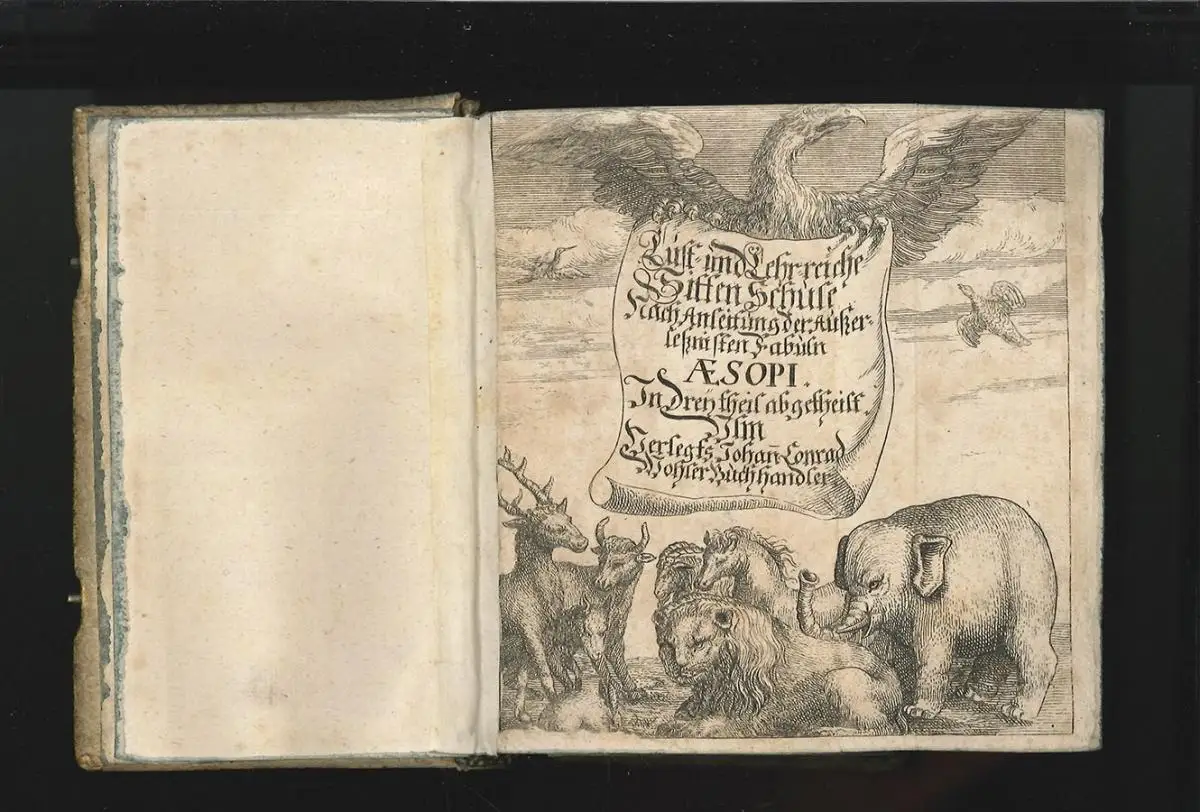 Lust- und Lehr-reiche
Sitten Schule
Nach Anleitung der Außer-
leßnisten Fabuln
ÆSOPI.
In Dreÿ theil abgetheilt.
Ulm
Verlegts Johañ Conrad
Wohler Buchhandler